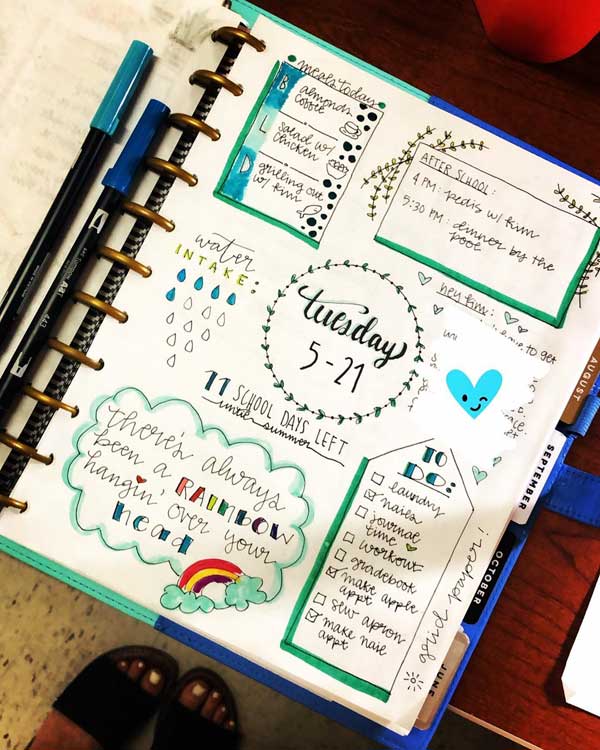 meals today
B
almonds
coffee
L
salad w/
chicken
D
grilling out
w/ kim
AFTER SCHOOL:
4 PM: pedis w/ kim
5:30 PM: dinner by the
pool
water
INTAKE:
tuesday
5-21
hey kim:
to get
11 SCHOOL DAYS LEFT
until summer
there's always
been a RAINBOW
hangin' over your
head
TO
DO:
laundry
nails
journal
time
workout
gradebook
make apple
appt
sew apron
make nail
appt
grid paper!
AUGUST
SEPTEMBER
OCTOBER
JUNE
443